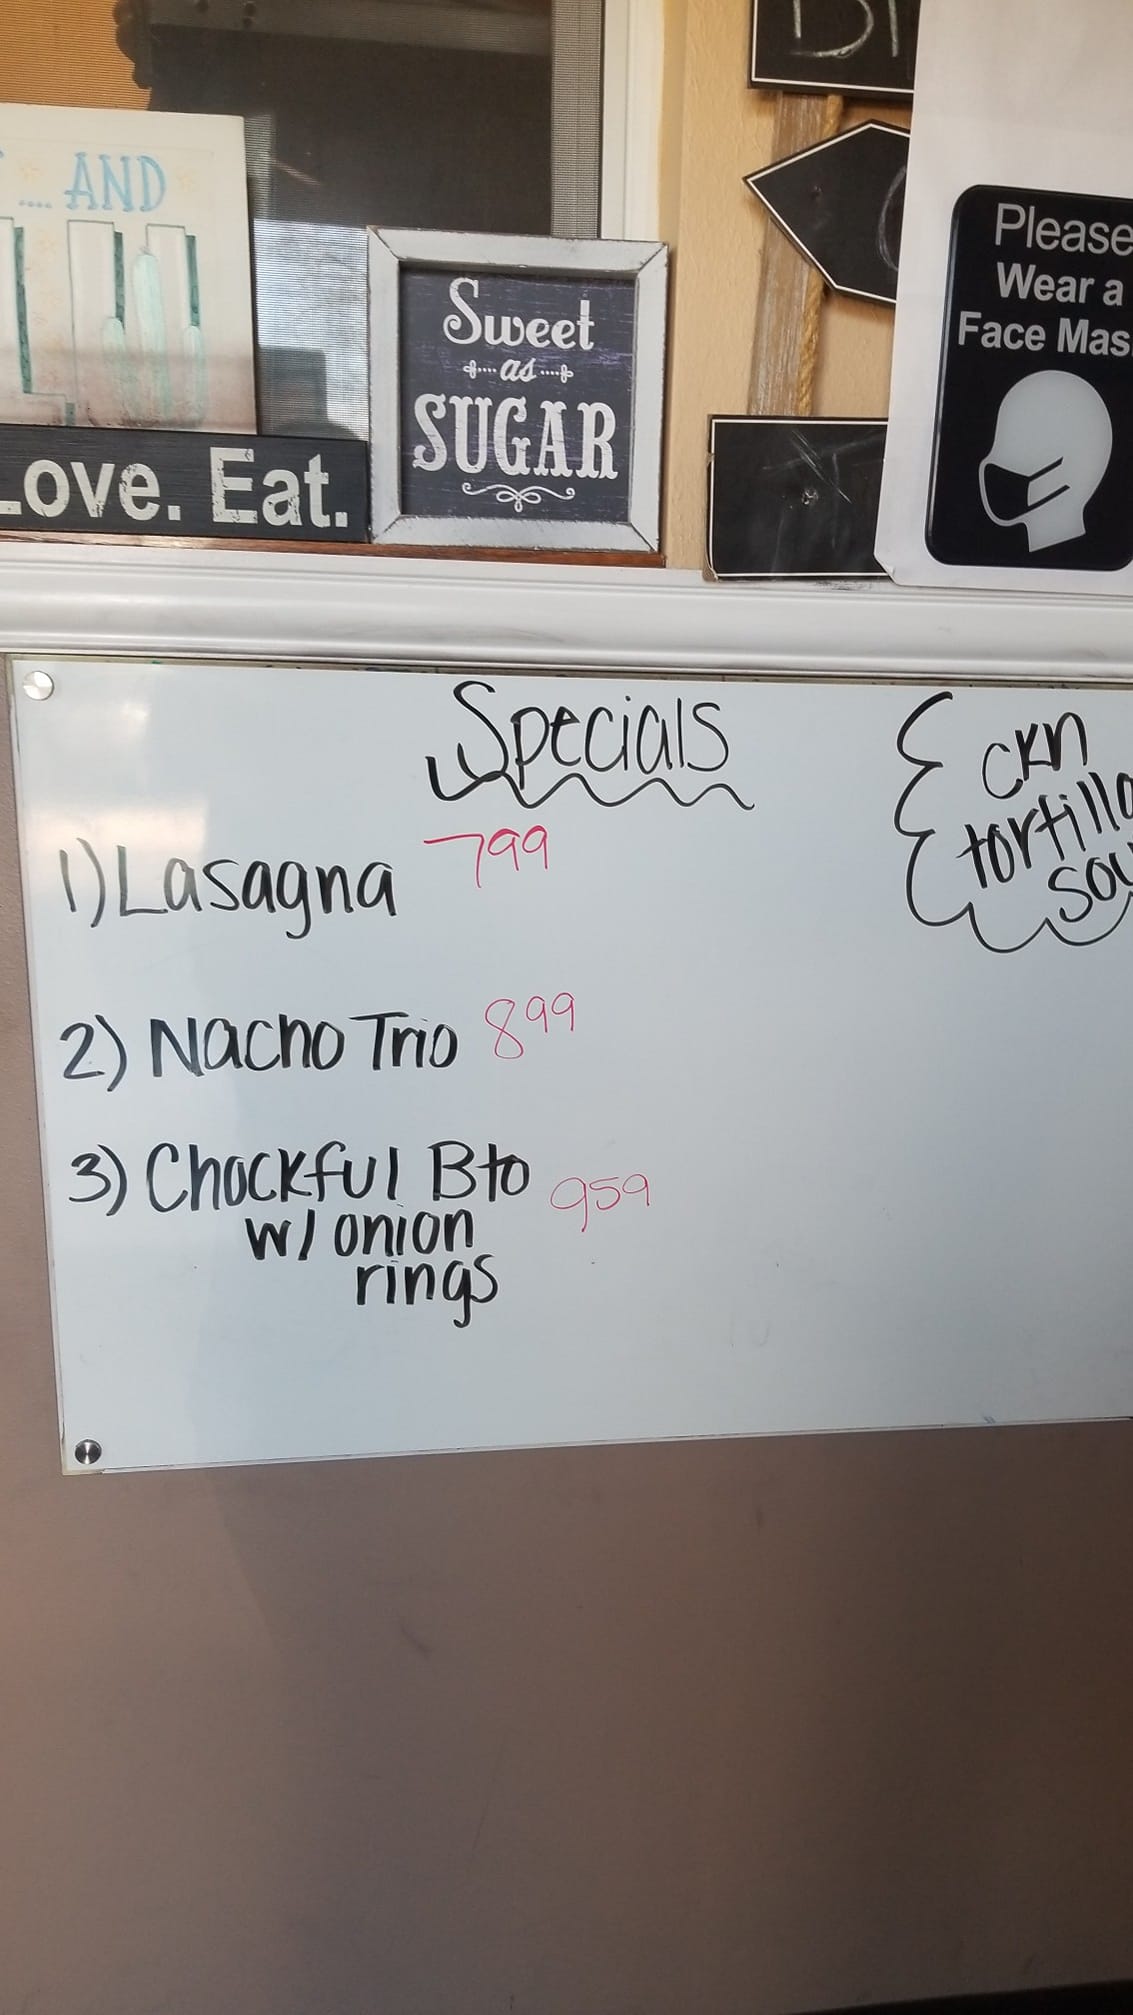 .... AND
Love. Eat.
Sweet
as
SUGAR
Please
Wear a
Face Mas
Specials
1) Lasagna 799
2) Nacho Trio 899
3) Chockful Bto 959
w/ onion
rings
CKN
tortilla
sou